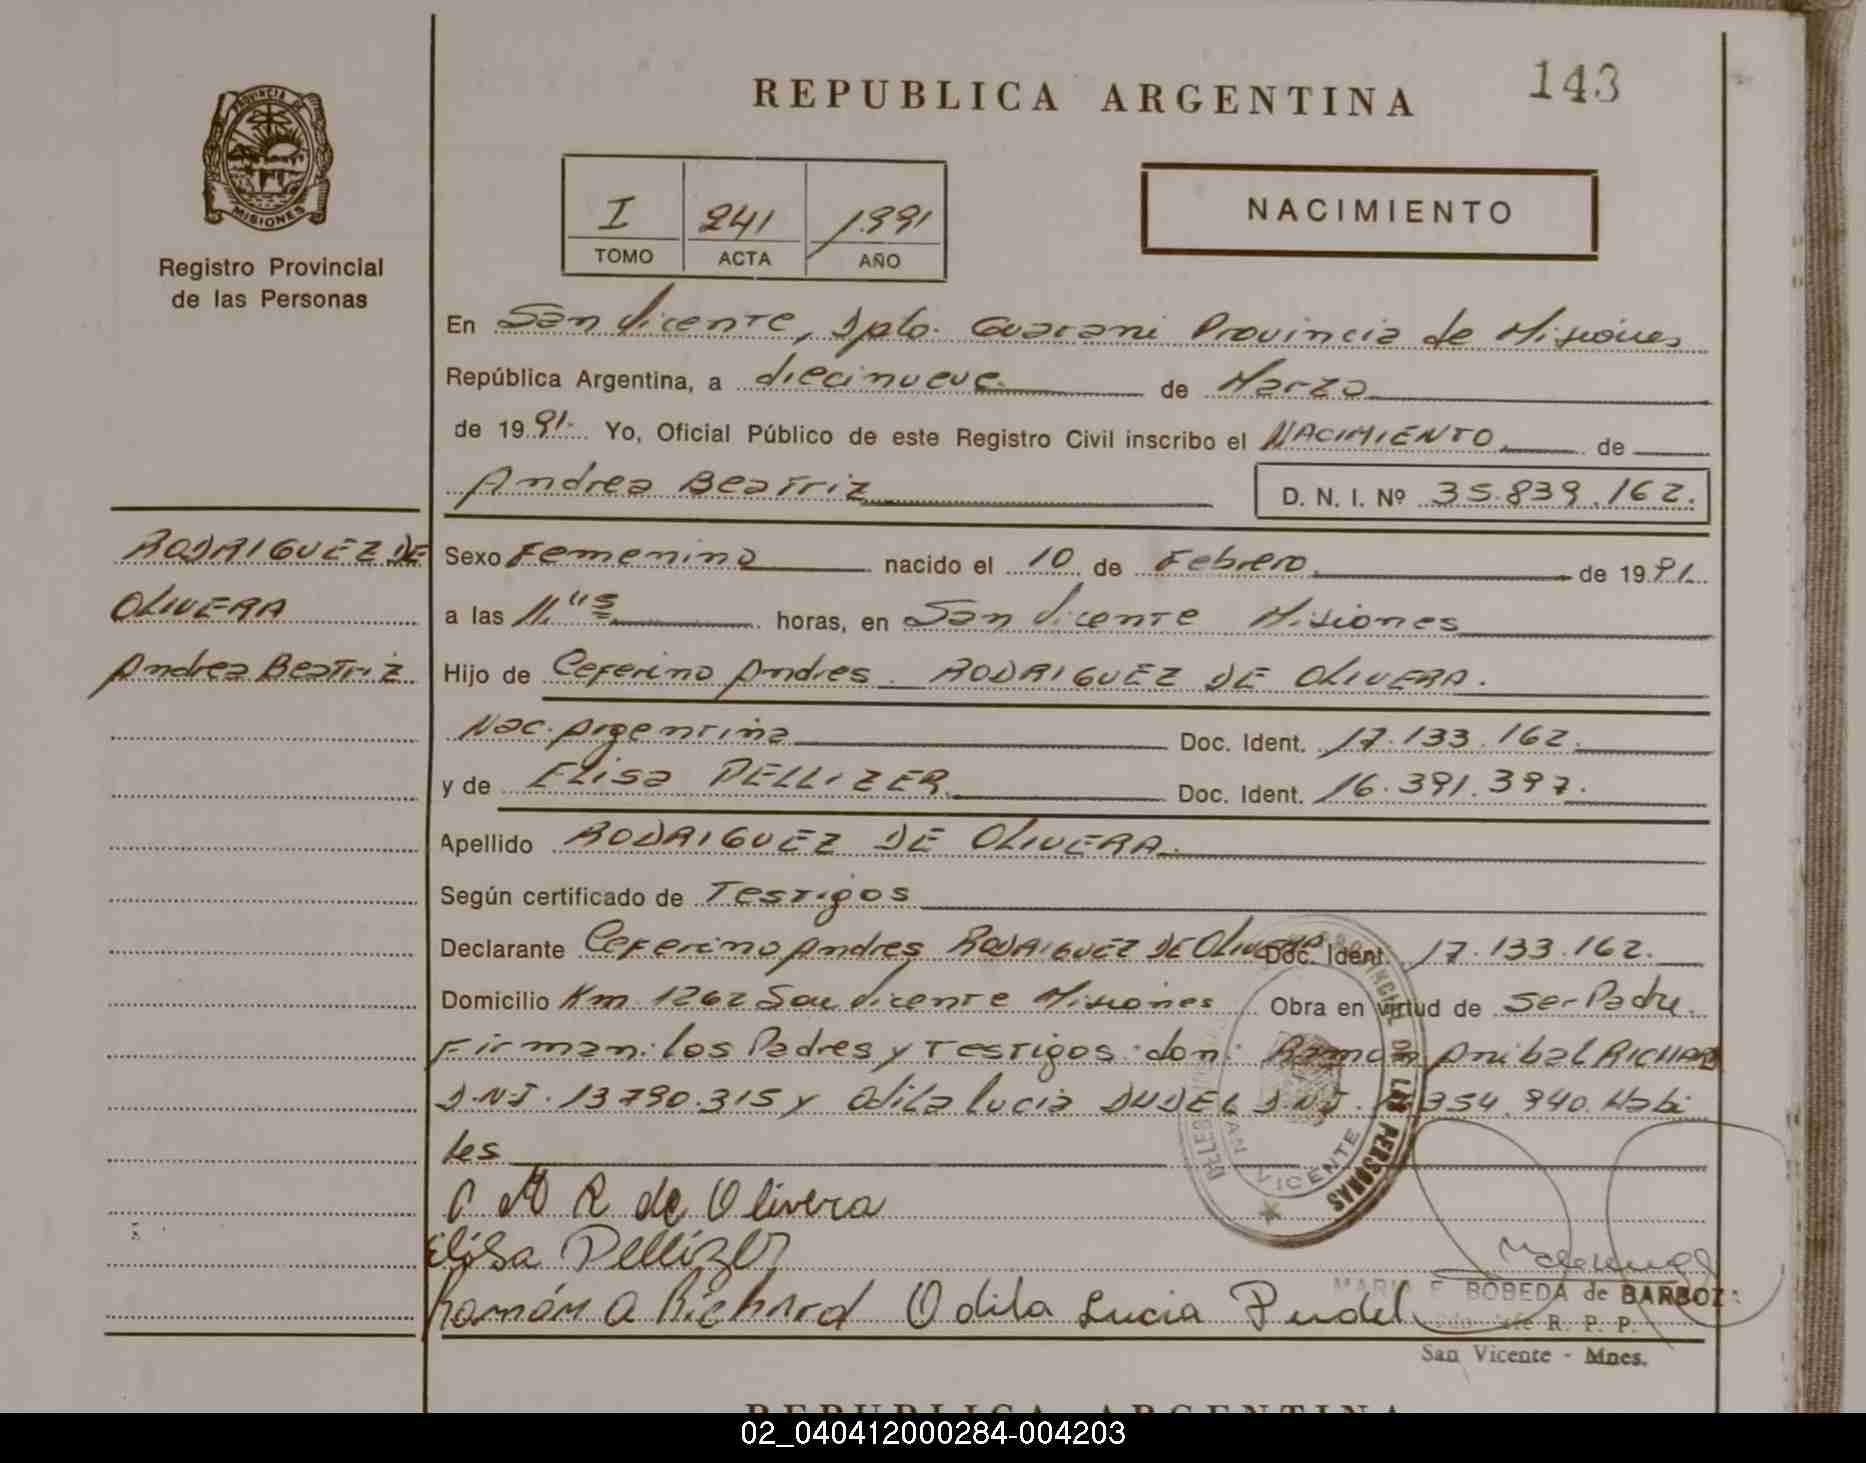 REPUBLICA ARGENTINA
143
PROVINCIA DE
MISIONES
Registro Provincial
de las Personas
I 241 1991
TOMO ACTA AÑO
NACIMIENTO
En San Vicente, Dpto. Guarani Provincia de Misiones
República Argentina, a diecinueve de Marzo
de 1991. Yo, Oficial Público de este Registro Civil inscribo el NACIMIENTO de
Andrea Beatriz D. N. I. Nº 35.839.162.
RODRIGUEZ DE
OLIVERA
Andrea Beatriz
Sexo Femenino nacido el 10 de Febrero de 1991.
a las 11. horas, en San Vicente Misiones
Hijo de Ceferino Andres RODRIGUEZ DE OLIVERA.
Nac. Argentina Doc. Ident. 17.133.162.
y de Elisa PELLIZER Doc. Ident. 16.391.397.
Apellido RODRIGUEZ DE OLIVERA.
Según certificado de Testigos
Declarante Ceferino Andres RODRIGUEZ DE OLIVERA Doc. Ident. 17.133.162.
Domicilio Km 1262 San Vicente Misiones Obra en virtud de ser Padre.
Firman: los Padres y Testigos: don: Ramon Anibal RICHARD
D.N.I. 13.790.315 y Odila Lucia DUDEL D.N.I. 354.940. Habi
les
SAN VICENTE
DE LAS PERSONAS
R de Olivera
Elisa Pellizer
Ramón A Richard Odila Lucia Dudel
MARIA E. BOBEDA de BARBOZA
R. P. P.
San Vicente - Mnes.
REPUBLICA ARGENTINA
02_040412000284-004203